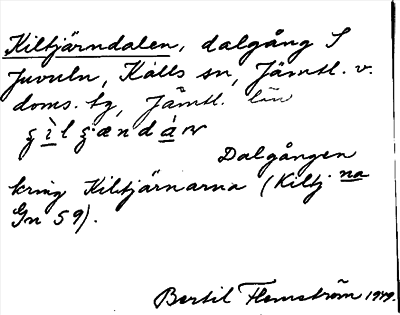 Kiltjärndalen, dalgång S
Juvuln, Kalls sn, Jämtl. v.
doms. tg, Jämtl. län
Dalgången
kring Kiltjärnarna (Kiltj. na
Gn 59).
Bertil Flemström 1949.